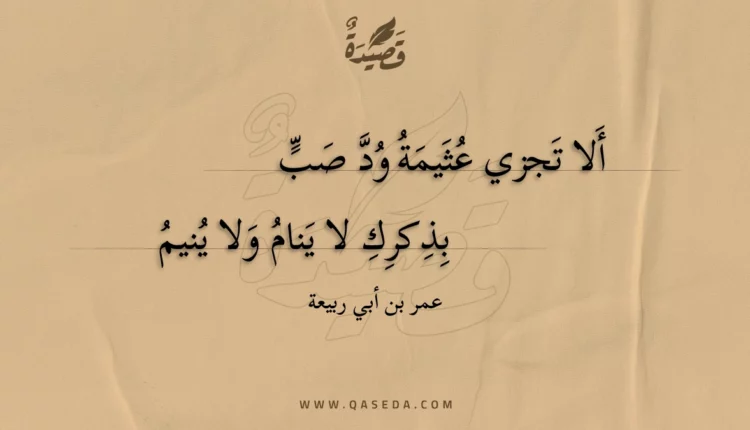 قَصِيدَةٌ
أَلا تَجزي عُثَيمَةُ وُدَّ صَبٍّ
بِذِكرِكِ لا يَنامُ وَلا يُنيمُ
عمر بن أبي ربيعة
WWW.QASEDA.COM